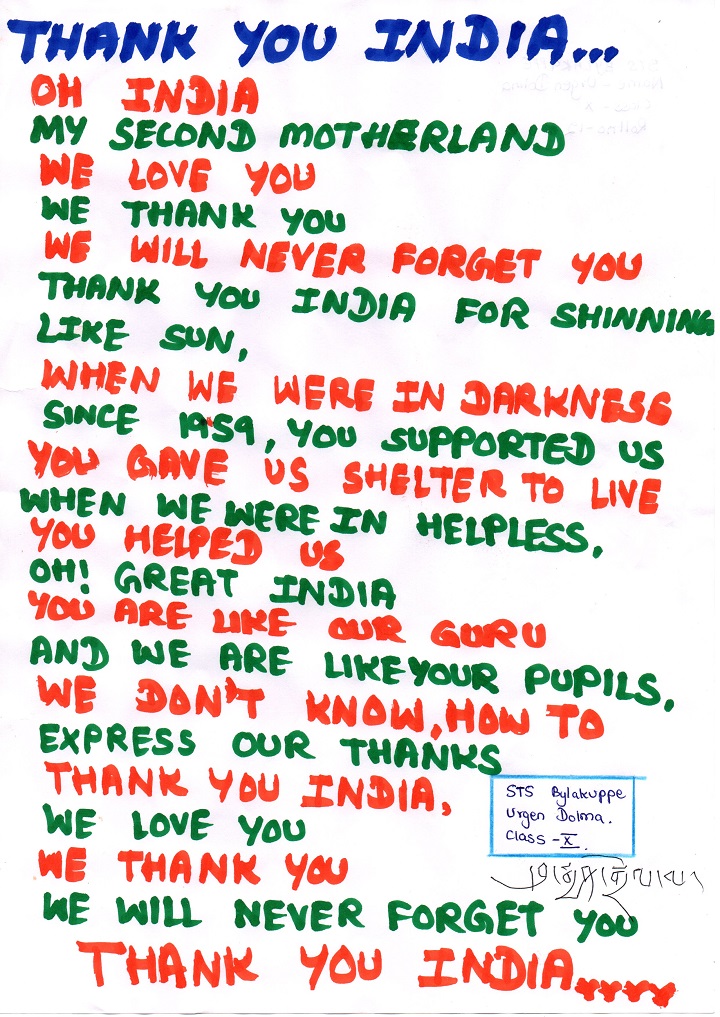 THANK YOU INDIA...
OH INDIA
MY SECOND MOTHERLAND
WE LOVE YOU
WE THANK YOU
WE WILL NEVER FORGET YOU
THANK YOU INDIA FOR SHINNING
LIKE SUN,
WHEN WE WERE IN DARKNESS
SINCE 1959, YOU SUPPORTED US
YOU GAVE US SHELTER TO LIVE
WHEN WE WERE IN HELPLESS,
YOU HELPED US
OH! GREAT INDIA
YOU ARE LIKE OUR GURU
AND WE ARE LIKE YOUR PUPILS,
WE DON'T KNOW, HOW TO
EXPRESS OUR THANKS
THANK YOU INDIA,
WE LOVE YOU
WE THANK YOU
WE WILL NEVER FORGET YOU
THANK YOU INDIA....
STS Bylakuppe
Urgen Dolma.
Class - X.